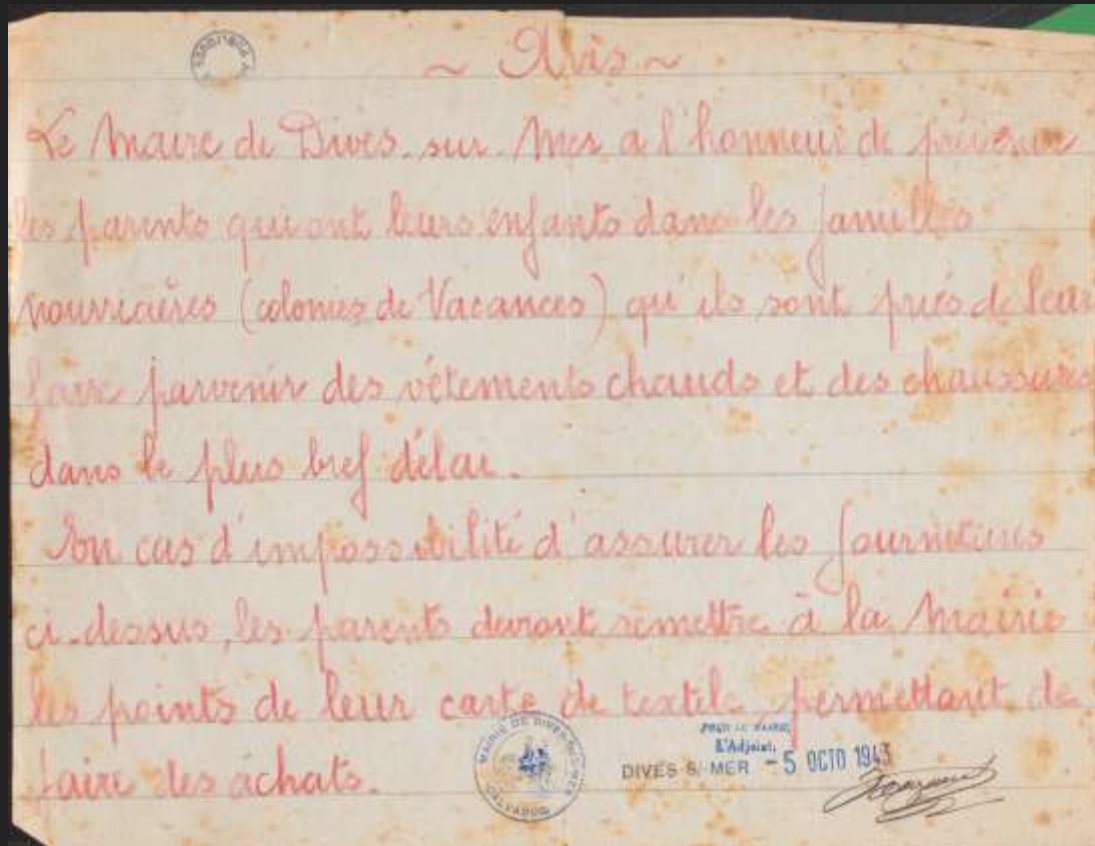 ~ Avis ~
Le Maire de Dives-sur-Mer a l'honneur de prévenir
les parents qui ont leurs enfants dans les familles
nourricières (colonies de Vacances) qu'ils sont priés de leur
faire parvenir des vêtements chauds et des chaussures
dans le plus bref délai.
En cas d'impossibilité d'assurer les fournitures
ci-dessus, les parents devront remettre à la Mairie
les points de leur carte de textile permettant de
faire des achats.
MAIRIE DE DIVES-SUR-MER
CALVADOS
POUR LE MAIRE,
L'Adjoint,
DIVES S/-MER - 5 OCTO 1943